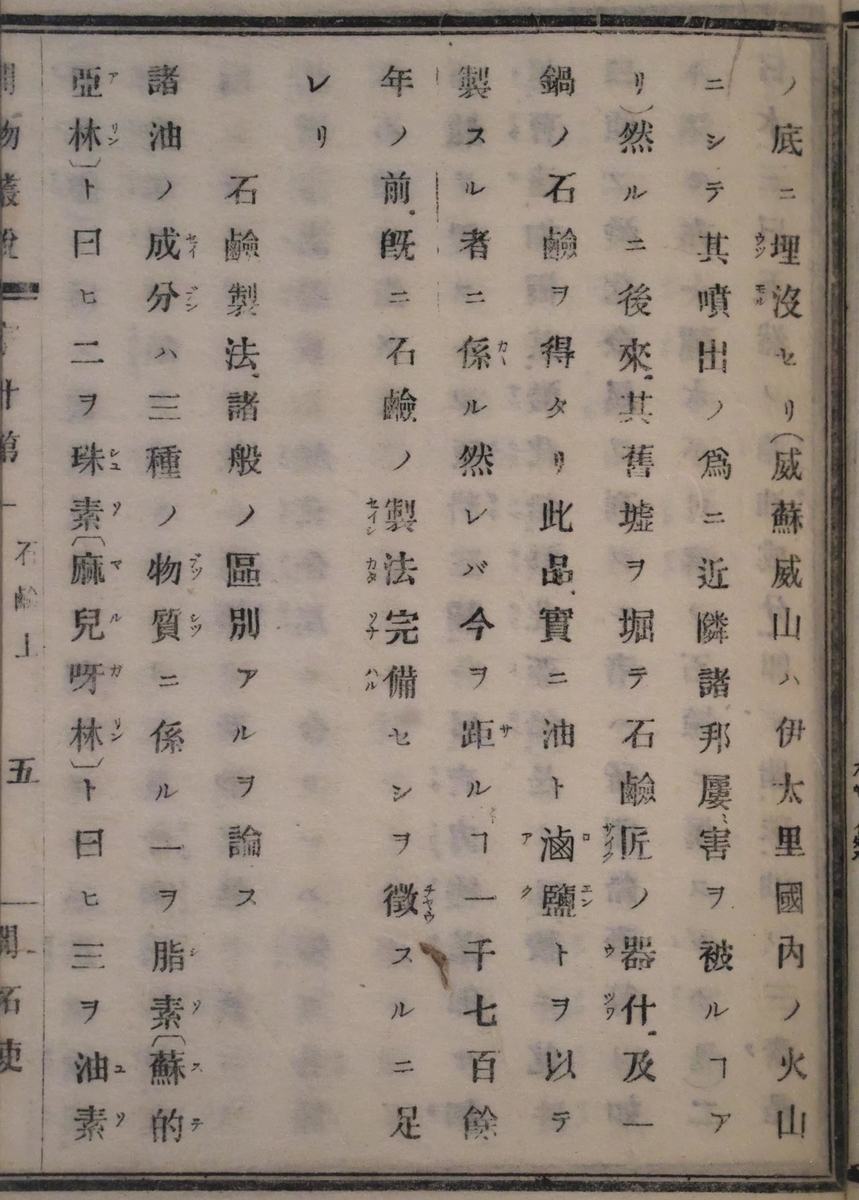 ノ底ニ埋沒セリ(威蘇威山ハ伊太里國内ノ火山
ニシテ其噴出ノ爲ニ近隣諸邦屢〻害ヲ被ルヿア
リ)然ルニ後來其舊墟ヲ堀テ石鹼匠ノ器什及一
鍋ノ石鹼ヲ得タリ此品實ニ油ト滷鹽トヲ以テ
製スル者ニ係ル然レバ今ヲ距ルヿ一千七百餘
年ノ前旣ニ石鹼ノ製法完備セシヲ徵スルニ足
レリ
石鹼製法諸般ノ區別アルヲ論ス
諸油ノ成分ハ三種ノ物質ニ係ル一ヲ脂素〔蘇的
亞林〕ト曰ヒ二ヲ珠素〔麻兒呀林〕ト曰ヒ三ヲ油素
開物叢說
石鹼上
五
開拓使